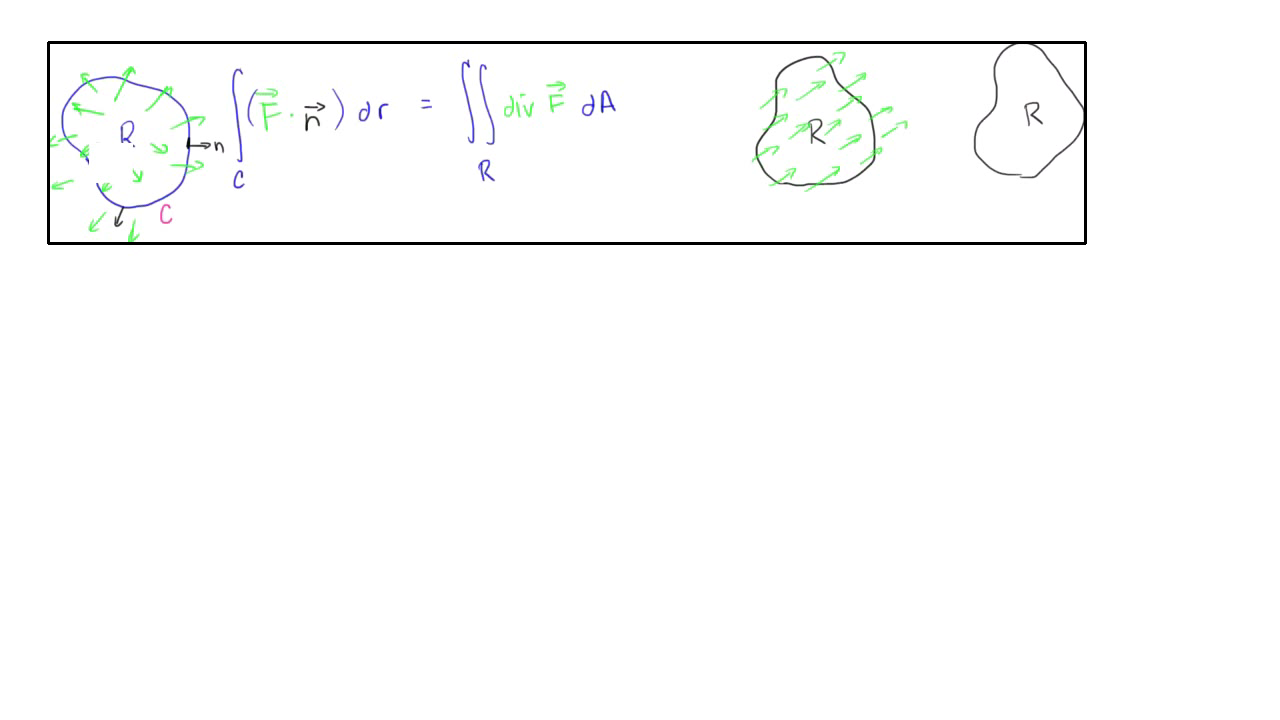 R n C ∫_C (F⃗ · n⃗) dr = ∬_R div F⃗ dA R R